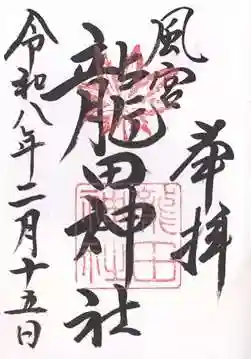 風宮
奉拝
龍田神社
令和八年二月十五日
龍田
神社